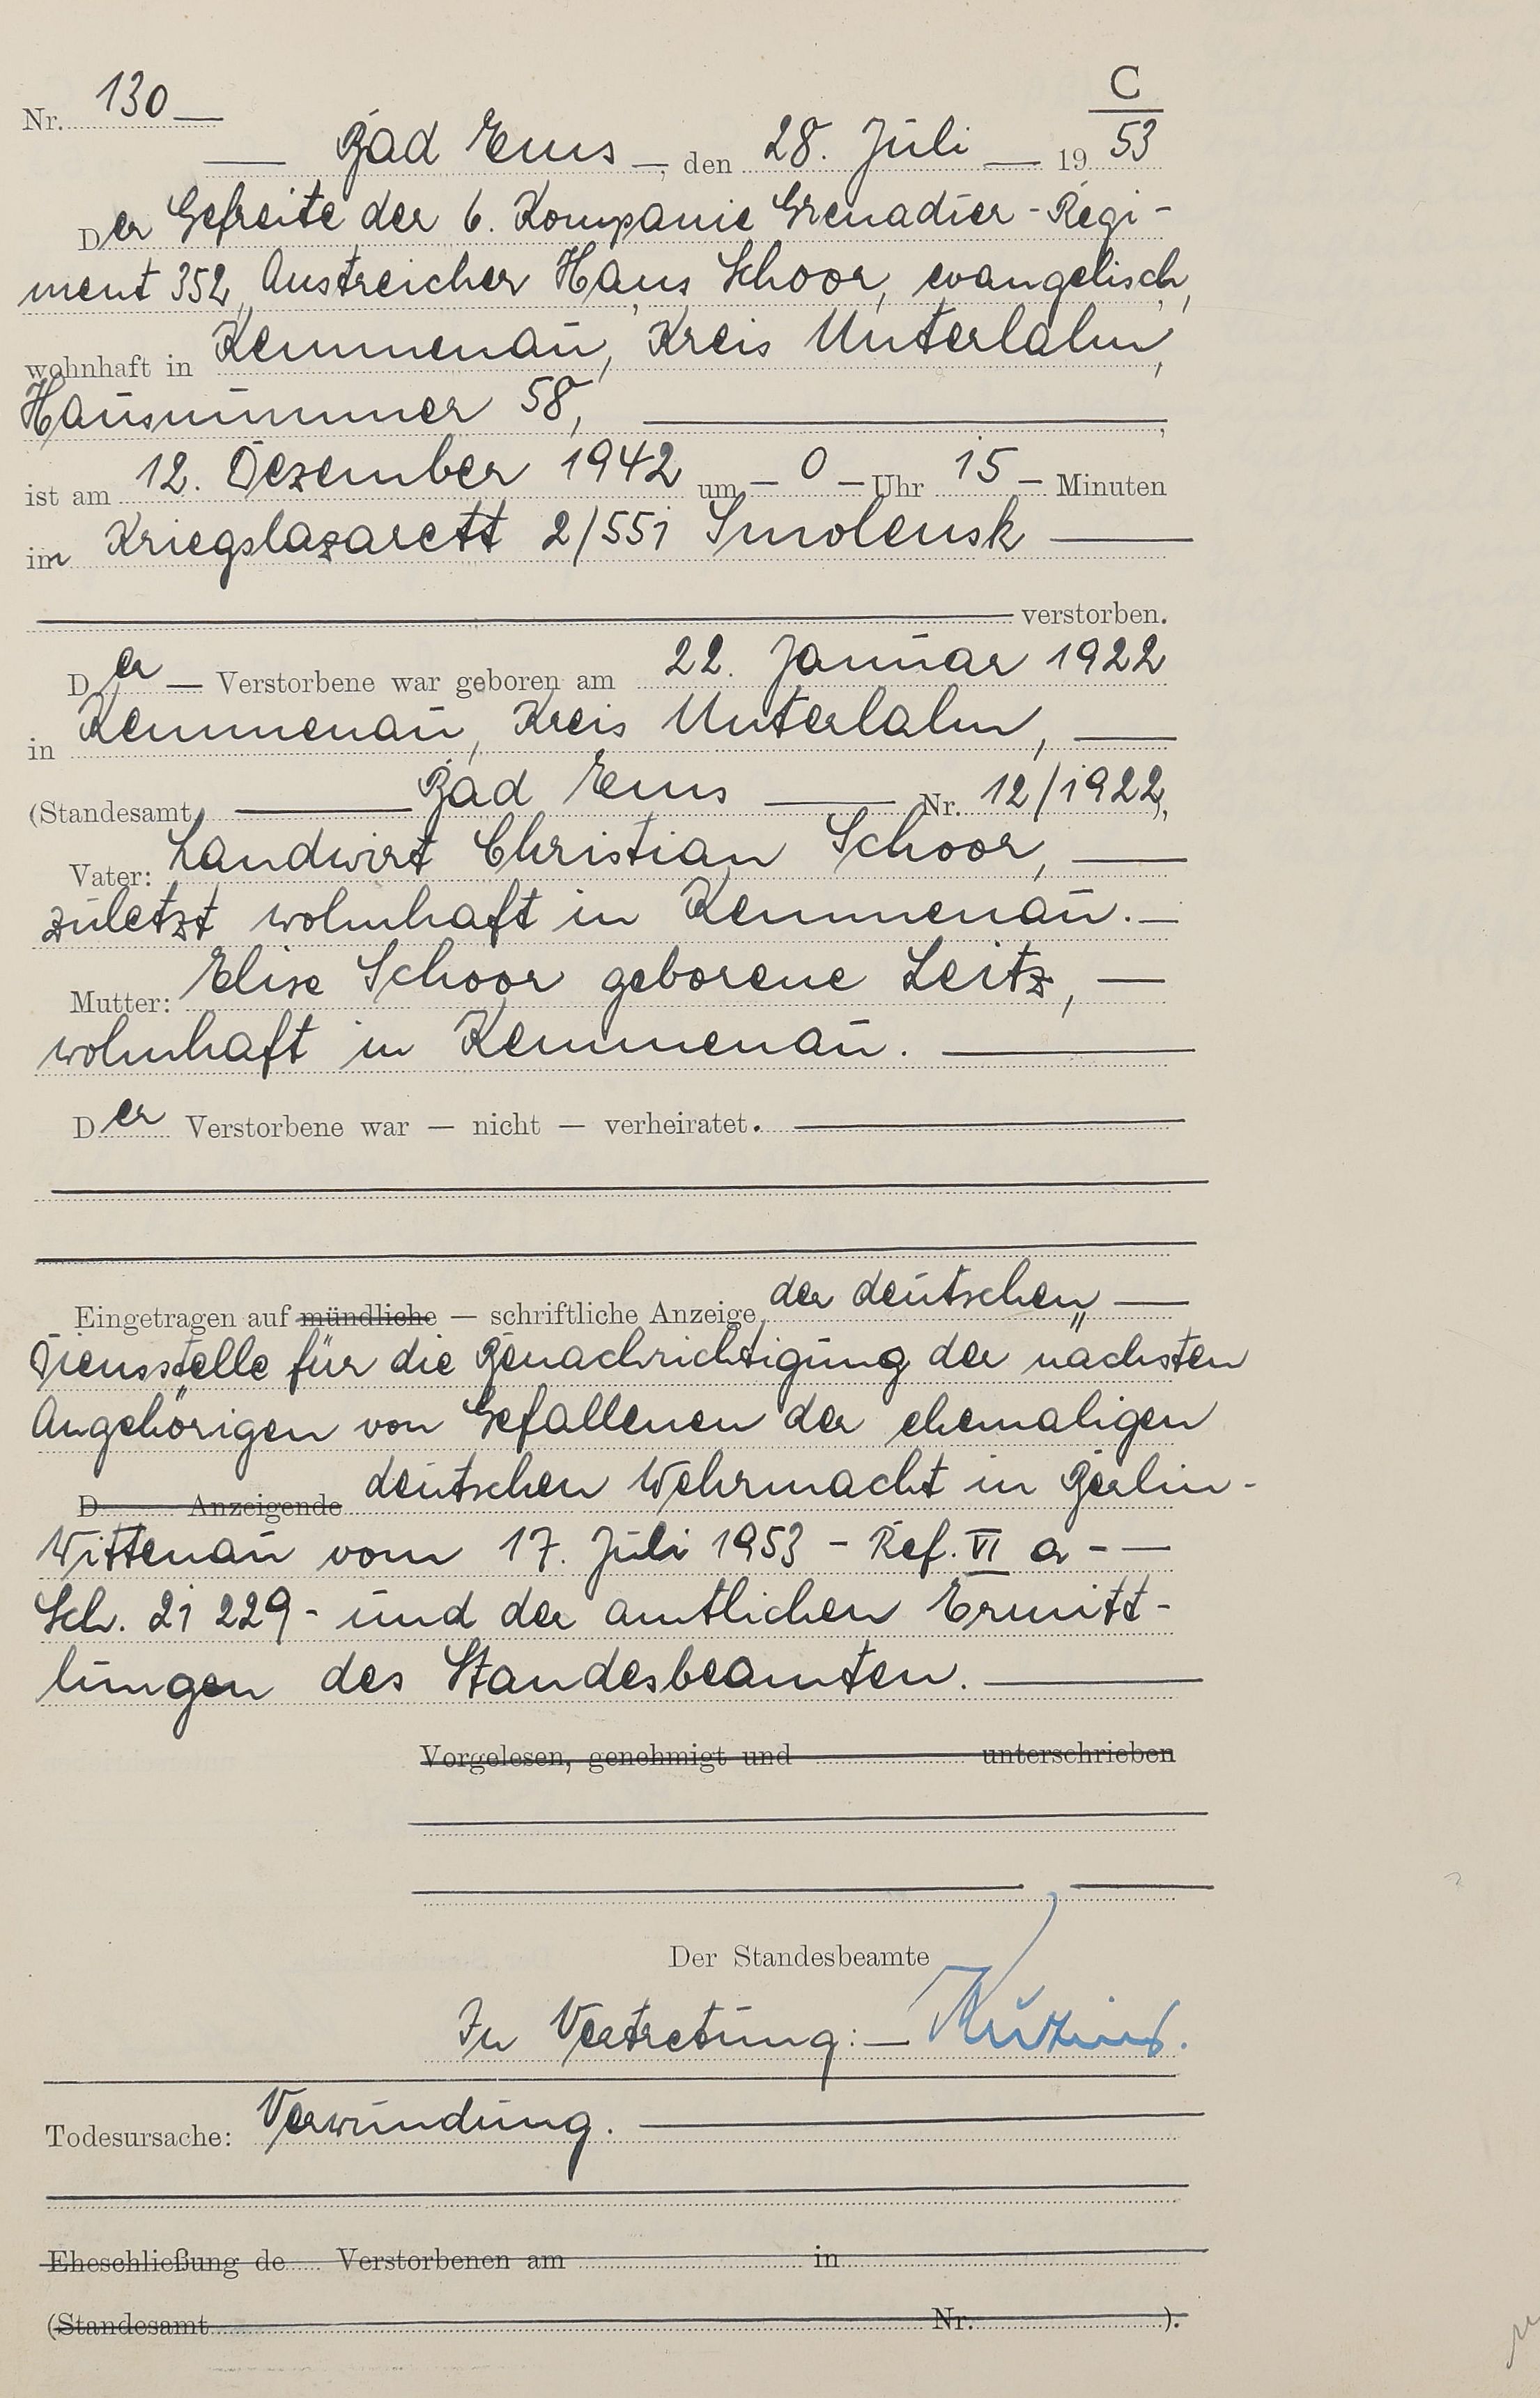 C
Nr. 130 —
— Bad Ems —, den 28. Juli — 19 53
Der Gefreite der 6. Kompanie Grenadier-Regi-
ment 352, Anstreicher Hans Schoor, evangelisch,
wohnhaft in Kemmenau, Kreis Unterlahn,
Hausnummer 58, —,
ist am 12. Dezember 1942 um — 0 — Uhr 15 — Minuten
im Kriegslazarett 2/551 Smolensk —
— verstorben.
Der — Verstorbene war geboren am 22. Januar 1922
in Kemmenau, Kreis Unterlahn, —
(Standesamt — Bad Ems — Nr. 12/1922),
Vater: Landwirt Christian Schoor, —
zuletzt wohnhaft in Kemmenau. —
Mutter: Elise Schoor geborene Leitz, —
wohnhaft in Kemmenau. —
Der Verstorbene war — nicht — verheiratet. —
Eingetragen auf mündliche — schriftliche Anzeige der deutschen —
Diensstelle für die Benachrichtigung der nächsten
Angehörigen von Gefallenen der ehemaligen
D Anzeigende deutschen Wehrmacht in Berlin-
Wittenau vom 17. Juli 1953 - Ref. VI a - —
Sch. 21 229 - und der amtlichen Ermitt-
lungen des Standesbeamten. —
Vorgelesen, genehmigt und unterschrieben
Der Standesbeamte
In Vertretung: —
Todesursache: Verwundung. —
Eheschließung de Verstorbenen am in
(Standesamt Nr. ).